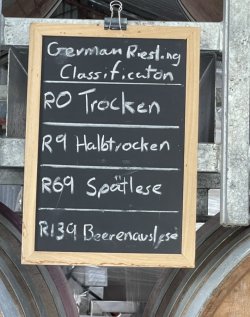 German Riesling
Classificaton
R0 Trocken
R9 Halbtrocken
R69 Spätlese
R139 Beerenauslese